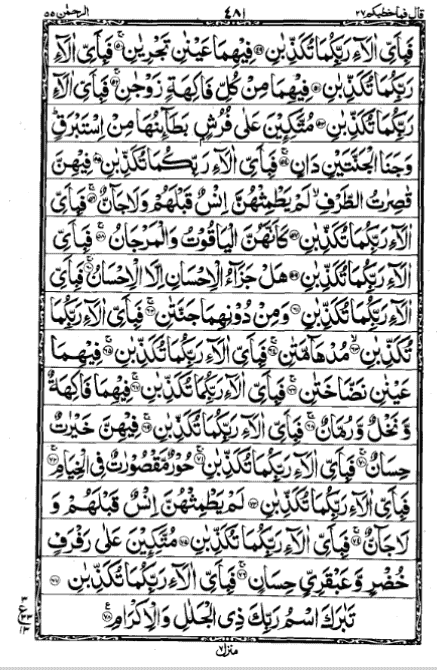 قال فما خطبكم ٢٧ ٤٨١ الرحمٰن ٥٥
فَبِاَىِّ اٰلَآءِ رَبِّكُمَا تُكَذِّبٰنِ ﴿٤٩﴾ فِيْهِمَا عَيْنٰنِ تَجْرِيٰنِ ﴿٥٠﴾ فَبِاَىِّ اٰلَآءِ
رَبِّكُمَا تُكَذِّبٰنِ ﴿٥١﴾ فِيْهِمَا مِنْ كُلِّ فَاكِهَةٍ زَوْجٰنِ ﴿٥٢﴾ فَبِاَىِّ اٰلَآءِ
رَبِّكُمَا تُكَذِّبٰنِ ﴿٥٣﴾ مُتَّكِـِٕيْنَ عَلٰى فُرُشٍۭ بَطَآىِٕنُهَا مِنْ اِسْتَبْرَقٍ
وَجَنَا الْجَنَّتَيْنِ دَانٍ ﴿٥٤﴾ فَبِاَىِّ اٰلَآءِ رَبِّكُمَا تُكَذِّبٰنِ ﴿٥٥﴾ فِيْهِنَّ
قٰصِرٰتُ الطَّرْفِ لَمْ يَطْمِثْهُنَّ اِنْسٌ قَبْلَهُمْ وَلَا جَآنٌّ ﴿٥٦﴾ فَبِاَىِّ
اٰلَآءِ رَبِّكُمَا تُكَذِّبٰنِ ﴿٥٧﴾ كَاَنَّهُنَّ الْيَاقُوْتُ وَالْمَرْجَانُ ﴿٥٨﴾ فَبِاَىِّ
اٰلَآءِ رَبِّكُمَا تُكَذِّبٰنِ ﴿٥٩﴾ هَلْ جَزَآءُ الْاِحْسَانِ اِلَّا الْاِحْسَانُ ﴿٦٠﴾ فَبِاَىِّ
اٰلَآءِ رَبِّكُمَا تُكَذِّبٰنِ ﴿٦١﴾ وَمِنْ دُوْنِهِمَا جَنَّتٰنِ ﴿٦٢﴾ فَبِاَىِّ اٰلَآءِ رَبِّكُمَا
تُكَذِّبٰنِ ﴿٦٣﴾ مُدْهَآمَّتٰنِ ﴿٦٤﴾ فَبِاَىِّ اٰلَآءِ رَبِّكُمَا تُكَذِّبٰنِ ﴿٦٥﴾ فِيْهِمَا
عَيْنٰنِ نَضَّاخَتٰنِ ﴿٦٦﴾ فَبِاَىِّ اٰلَآءِ رَبِّكُمَا تُكَذِّبٰنِ ﴿٦٧﴾ فِيْهِمَا فَاكِهَةٌ
وَّ نَخْلٌ وَّ رُمَّانٌ ﴿٦٨﴾ فَبِاَىِّ اٰلَآءِ رَبِّكُمَا تُكَذِّبٰنِ ﴿٦٩﴾ فِيْهِنَّ خَيْرٰتٌ
حِسَانٌ ﴿٧٠﴾ فَبِاَىِّ اٰلَآءِ رَبِّكُمَا تُكَذِّبٰنِ ﴿٧١﴾ حُوْرٌ مَّقْصُوْرٰتٌ فِى الْخِيَامِ ﴿٧٢﴾
فَبِاَىِّ اٰلَآءِ رَبِّكُمَا تُكَذِّبٰنِ ﴿٧٣﴾ لَمْ يَطْمِثْهُنَّ اِنْسٌ قَبْلَهُمْ وَ
لَا جَآنٌّ ﴿٧٤﴾ فَبِاَىِّ اٰلَآءِ رَبِّكُمَا تُكَذِّبٰنِ ﴿٧٥﴾ مُتَّكِـِٕيْنَ عَلٰى رَفْرَفٍ
خُضْرٍ وَّ عَبْقَرِيٍّ حِسَانٍ ﴿٧٦﴾ فَبِاَىِّ اٰلَآءِ رَبِّكُمَا تُكَذِّبٰنِ ﴿٧٧﴾
تَبٰرَكَ اسْمُ رَبِّكَ ذِى الْجَلٰلِ وَالْاِكْرَامِ ﴿٧٨﴾
منزل ٧